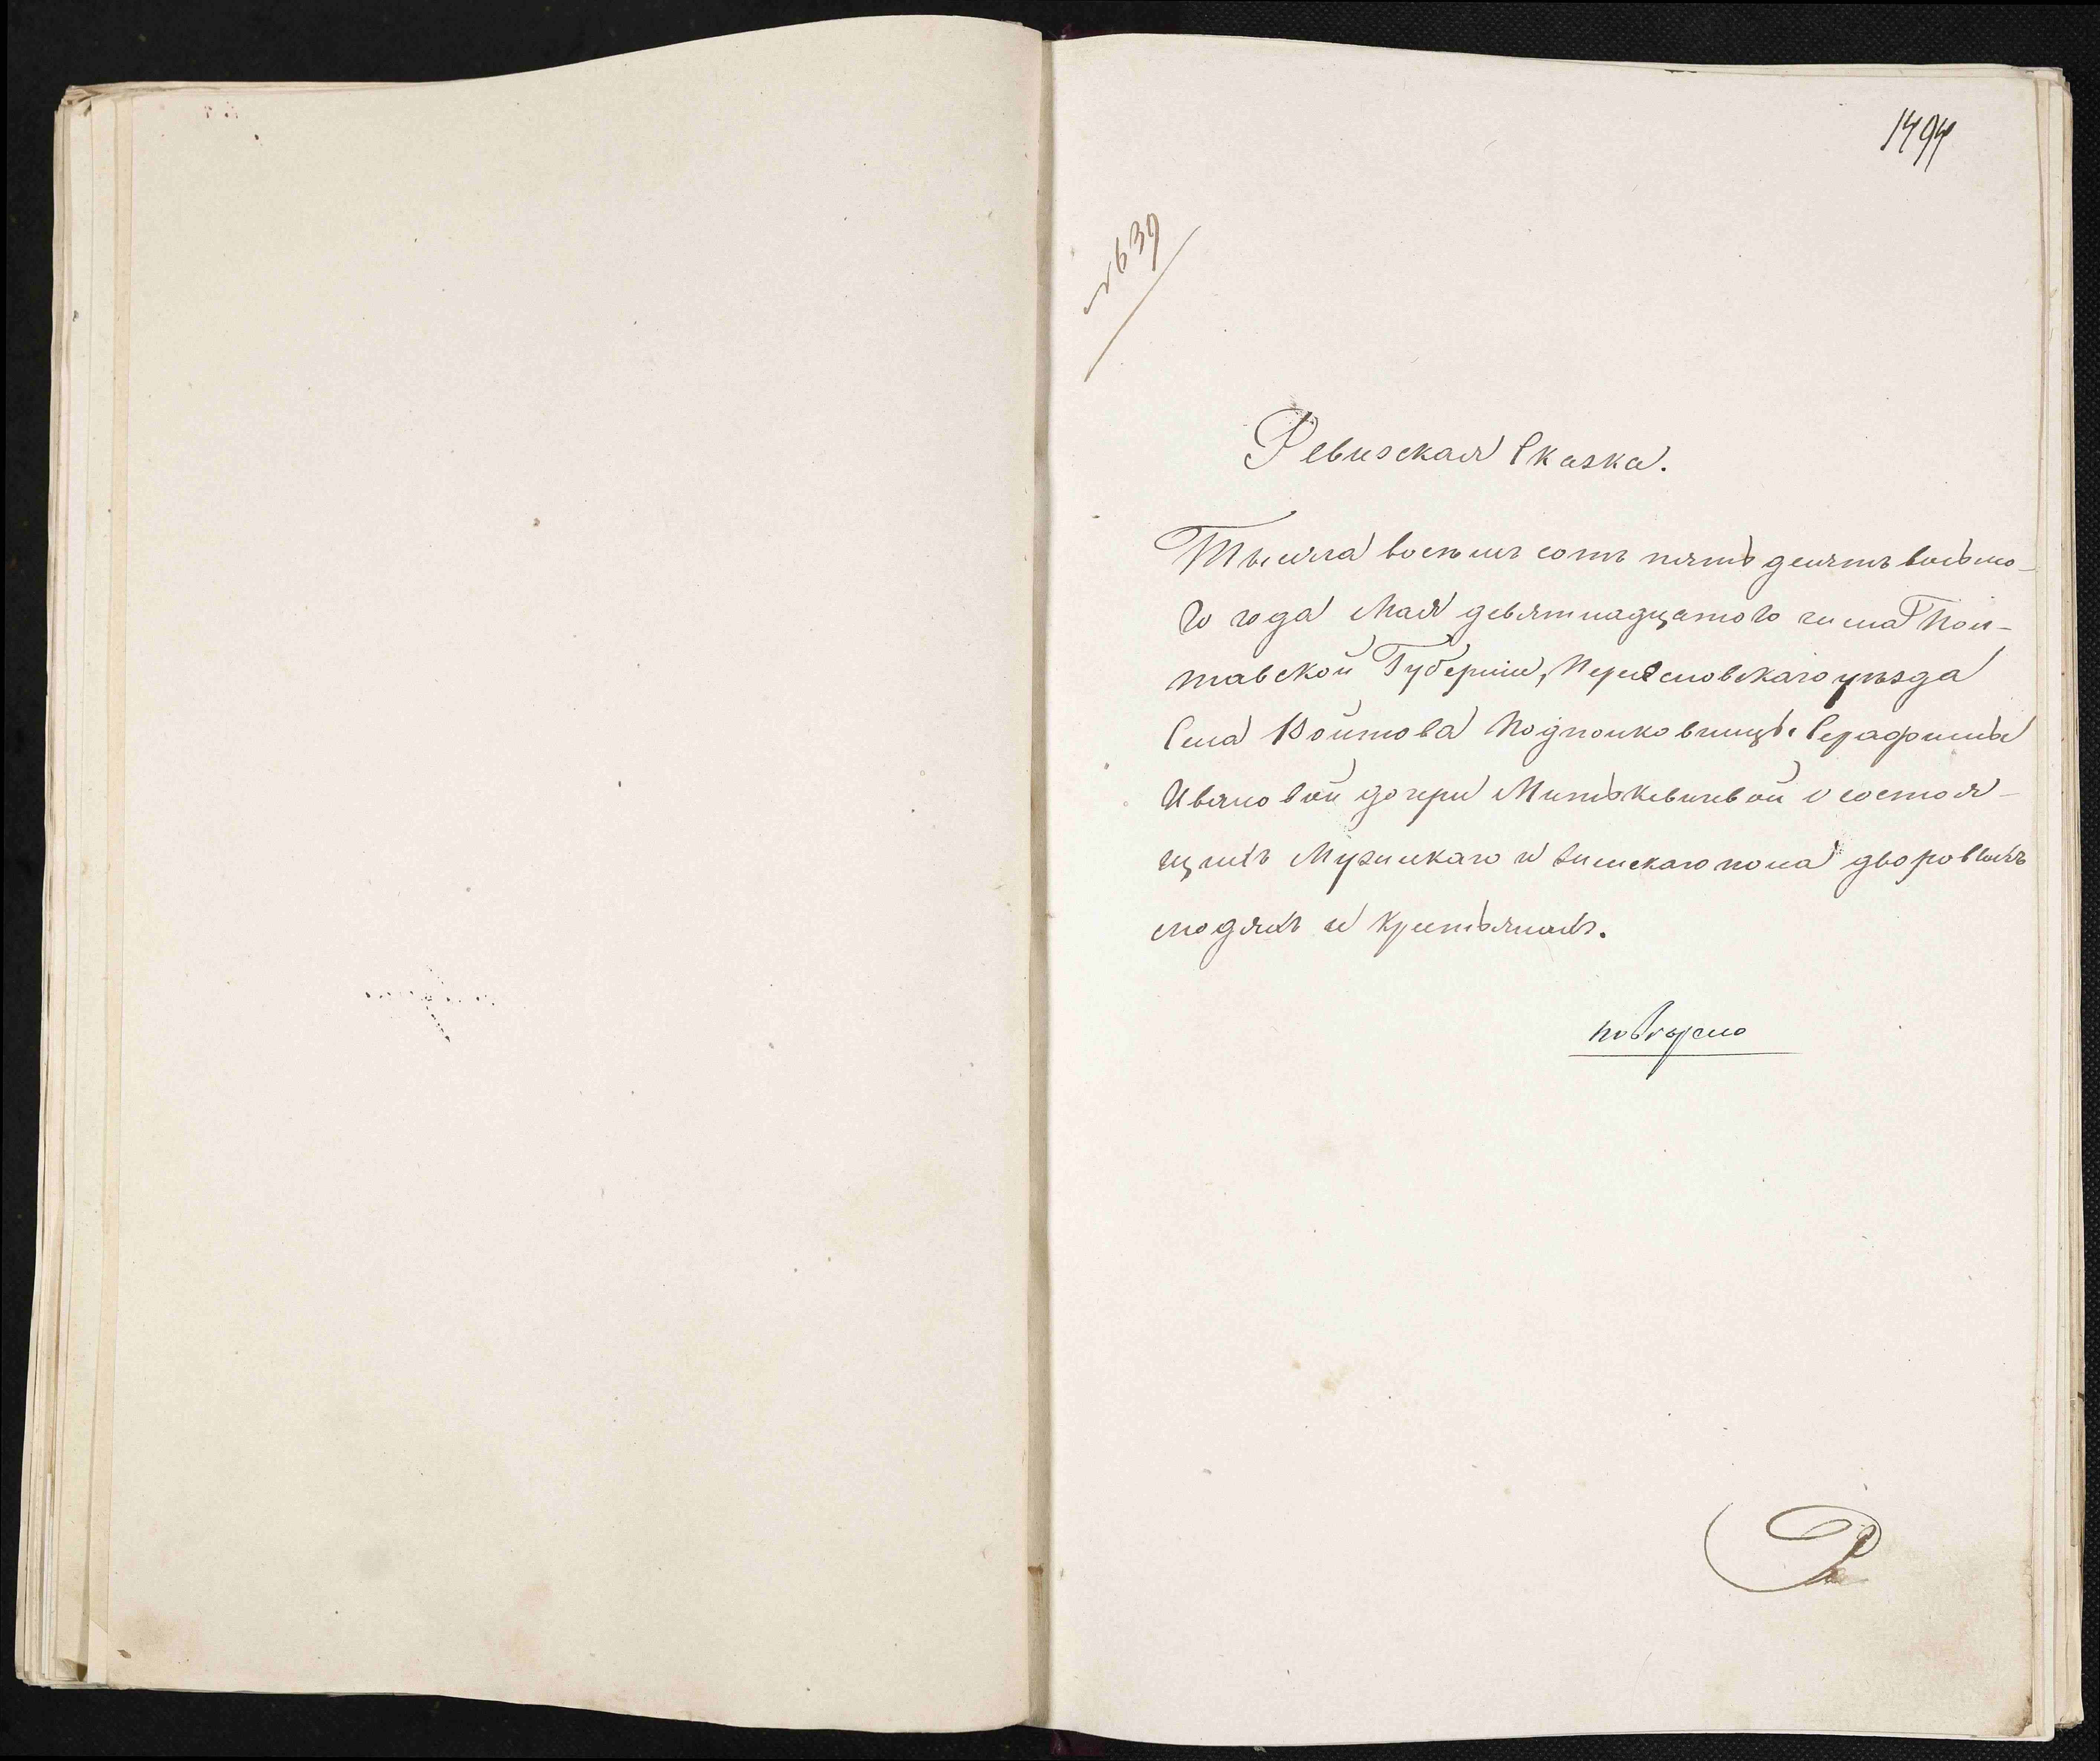 1494
№ 639
Ревизская Сказка.
Тысяча восемь сотъ пять десятъ восьмо-
го года Мая девятнадцатого числа Пол-
тавской Губерніи, Переясловскаго уѣзда
Села Войтова Подполковницы Серафимы
Ивановой дочери Митькевичевой о состоя-
щихъ Мужескаго и женскаго пола дворовыхъ
людяхъ и Крестьянахъ.
повѣрено